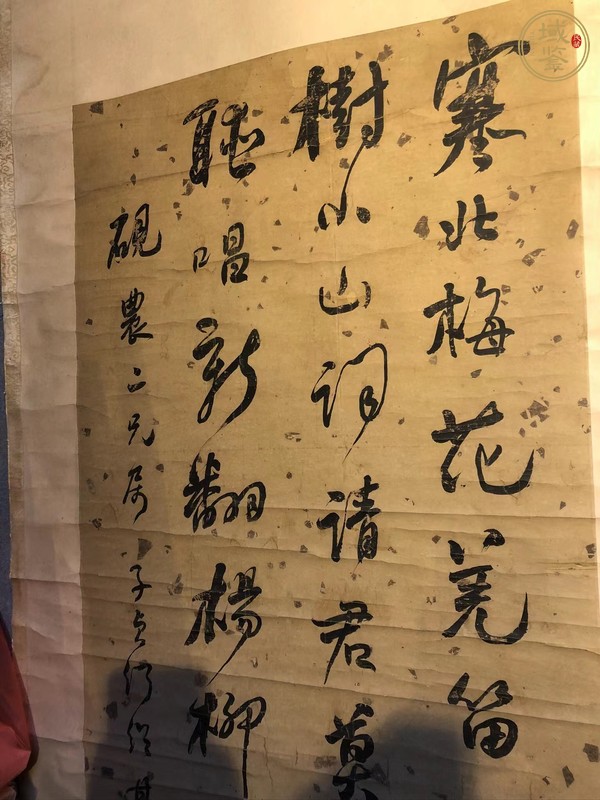 塞北梅花羌笛
樹小山詞請君莫
聽唱新翻楊柳
硯農二兄屬 子貞何紹基
域鑒